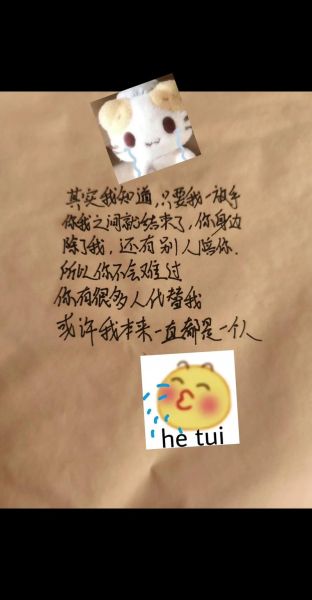 其实我知道,只要我一放手
你我之间就结束了,你身边
除了我,还有别人陪你.
所以你不会难过
你有很多人代替我
或许我本来一直都是一个人
he tui